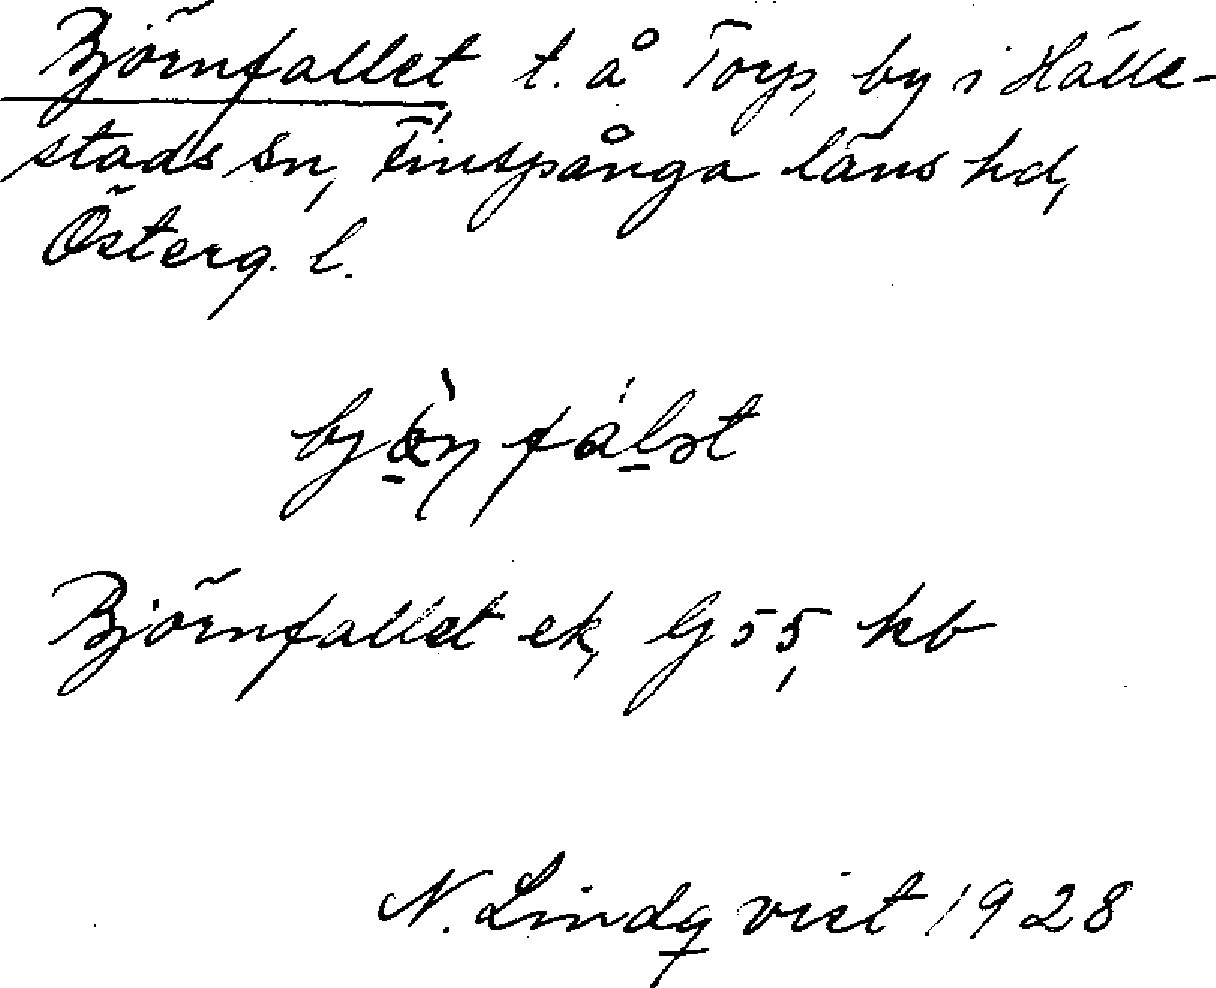 Björnfallet, t. å Torp, by i Hälle-
stads sn, Finspånga läns hd,
Österg. l.
Björnfallet ek, G 55, kb
N. Lindqvist 1928